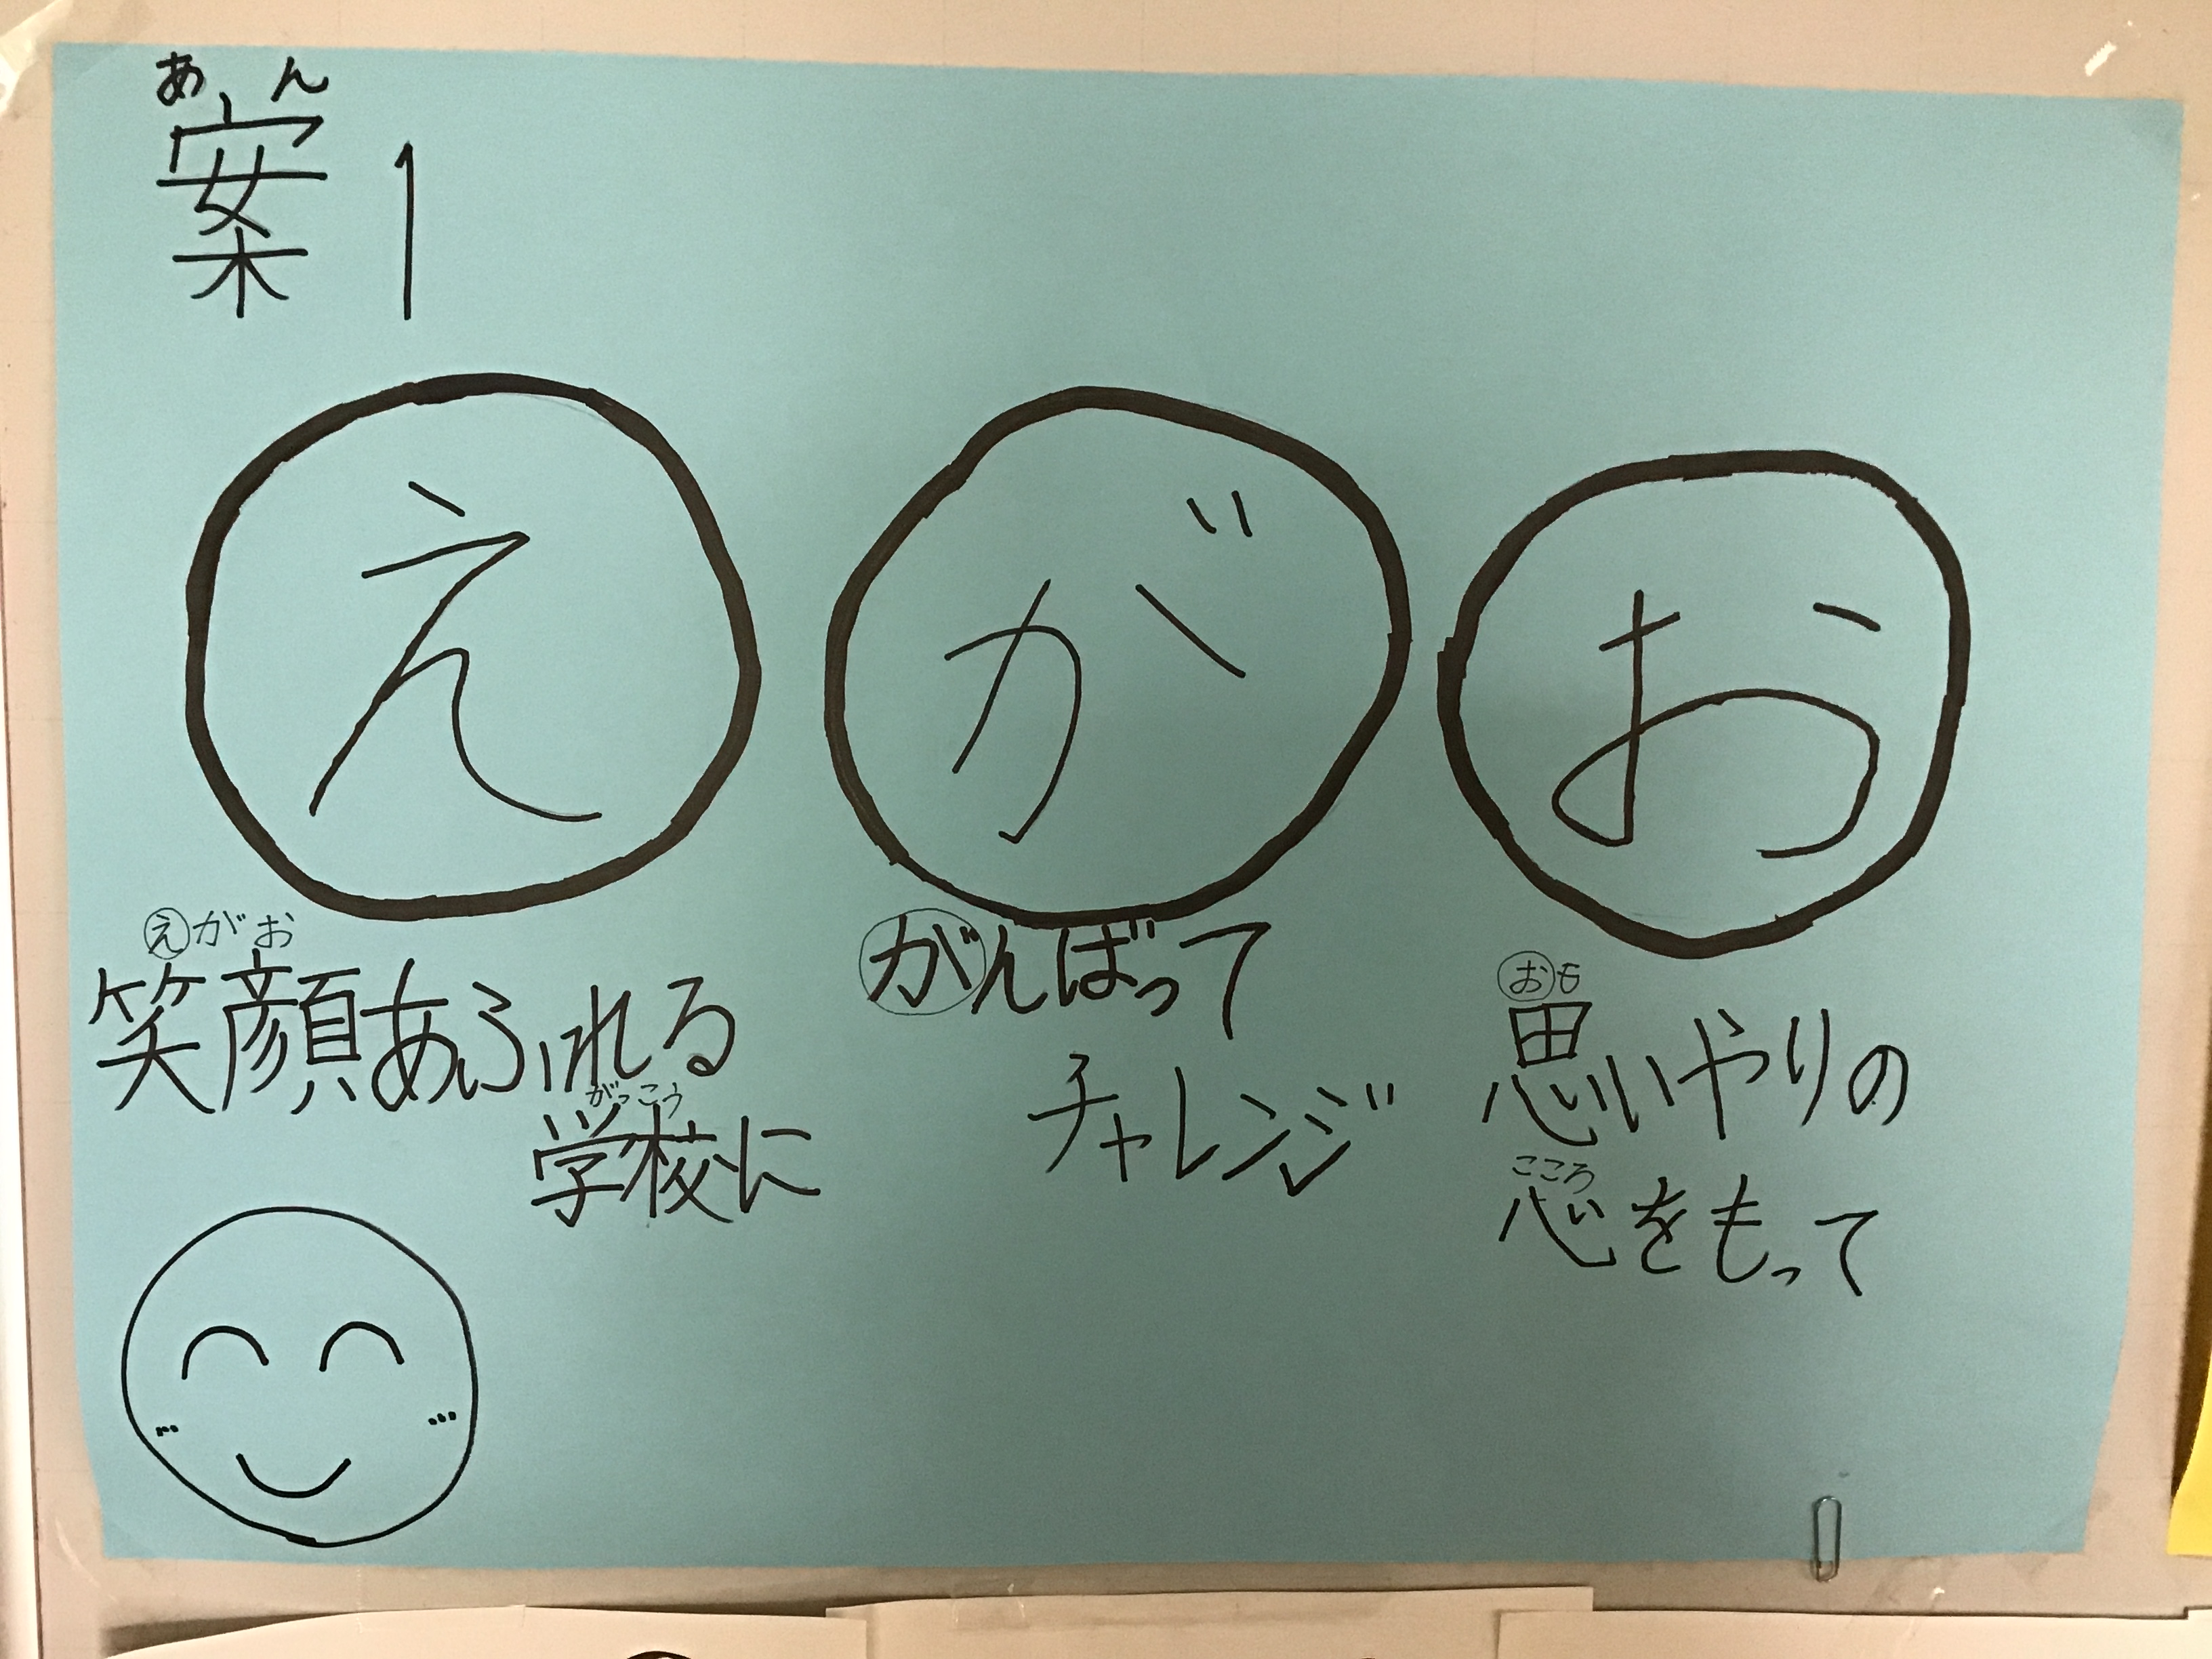 あん
案1
え が お
えがお
笑顔あふれる
がっこう
学校に
がんばって
チャレンジ
おも
思いやりの
こころ
心をもって